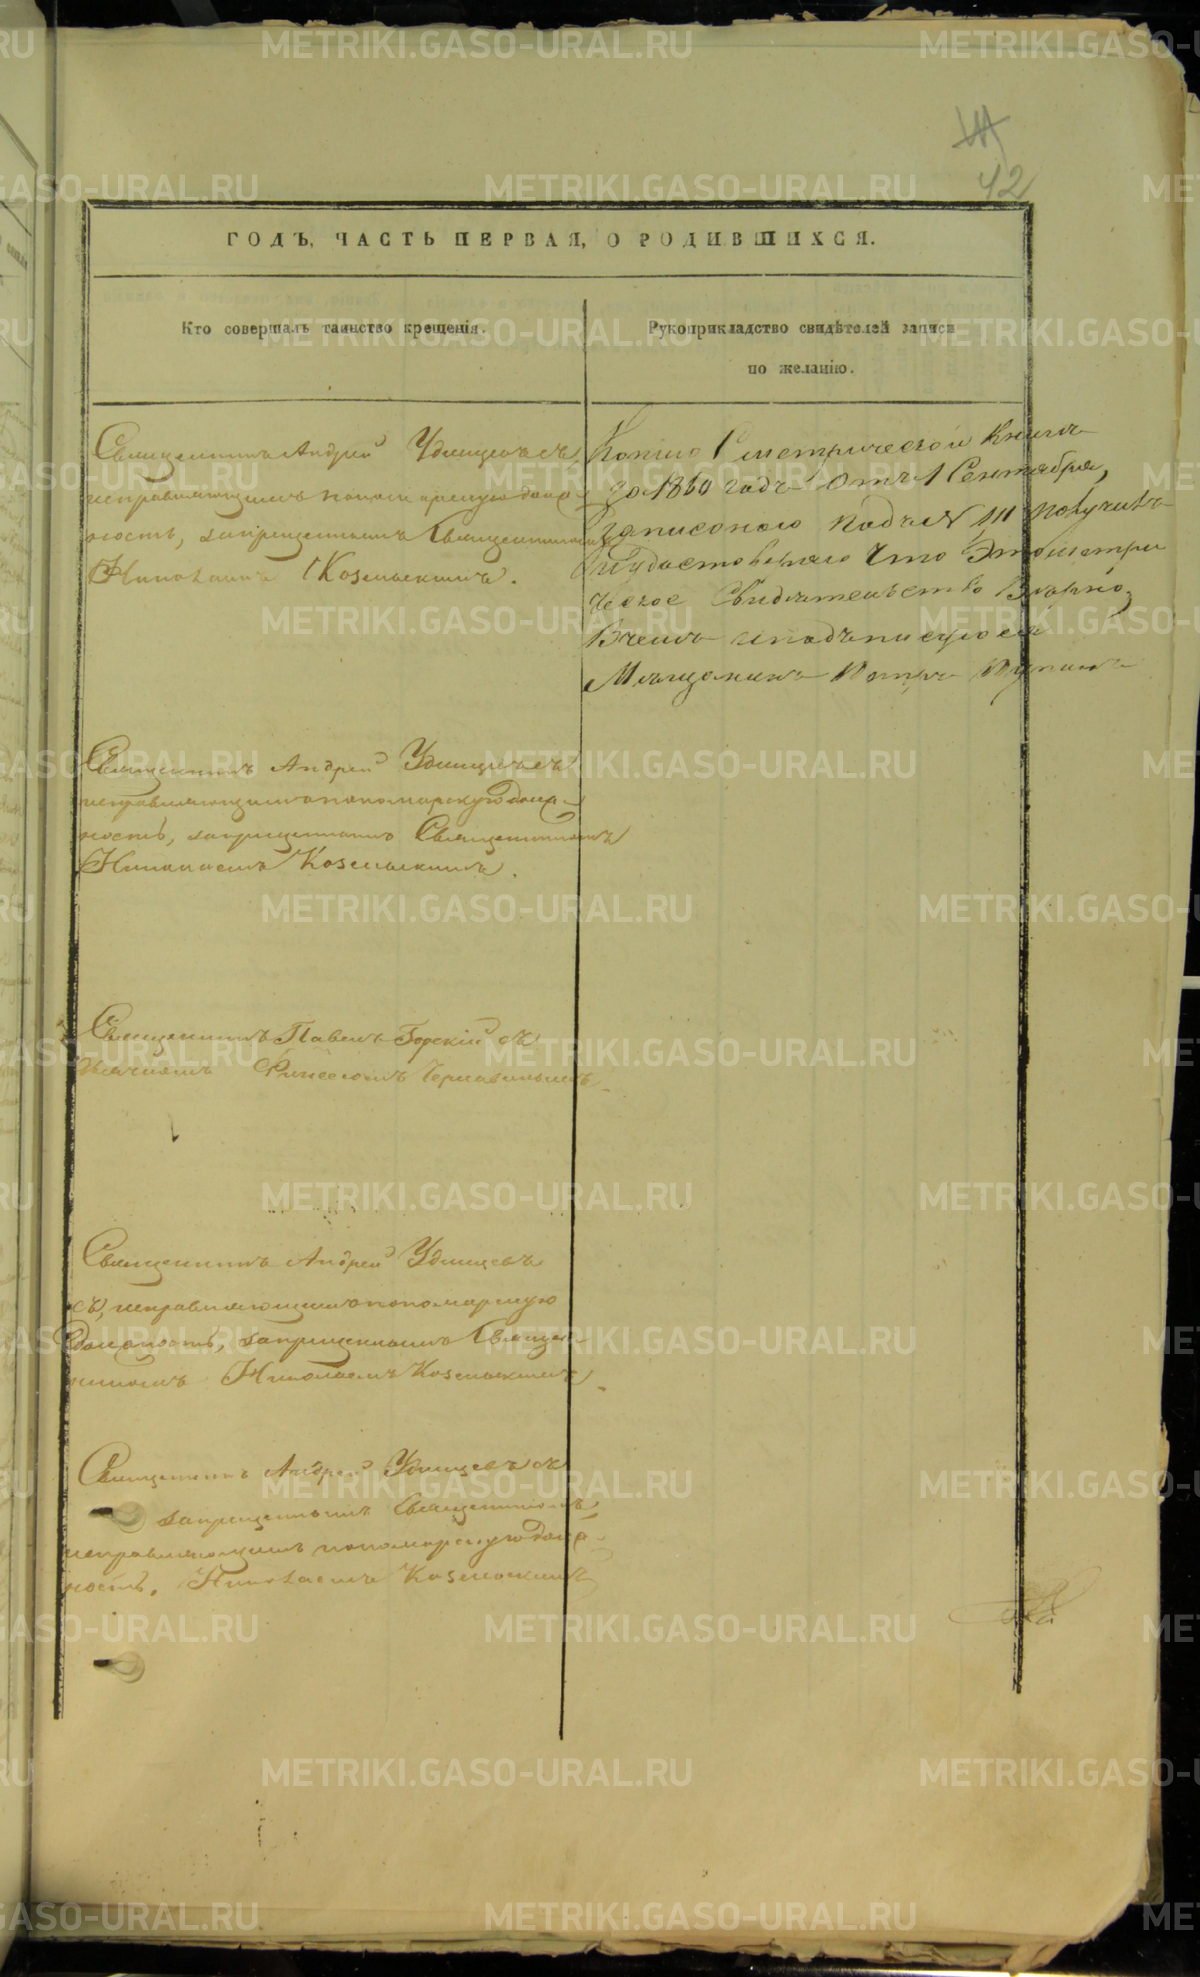 42
ГОДЪ, ЧАСТЬ ПЕРВАЯ, О РОДИВШИХСЯ.
Кто совершалъ таинство крещенія.
Рукоприкладство свидѣтелей записи
по желанію.
Священникъ Андрей Удинцевъ съ
исправляющимъ пономарскую долж-
ность, запрещеннымъ Священникомъ
Николаемъ Козельскимъ.
Копію С метрической Книги
за 1860 годъ Отъ 1 Сентября,
Записоного Подъ № Получилъ
Удостоверяю Что Это метри
ческое Свидѣтельство Верно,
Вчемъ иподписуюсь
Мѣщанинъ Петръ
Священникъ Андрей Удинцевъ съ
исправляющимъ пономарскую долж-
ность, запрещеннымъ Священникомъ
Николаемъ Козельскимъ.
Священникъ Павелъ Горскій съ
Дьячкомъ
Священникъ Андрей Удинцевъ
съ, исправляющимъ пономарскую
должность, запрещеннымъ Священ-
никомъ Николаемъ Козельскимъ.
Священникъ Андрей Удинцевъ съ
запрещеннымъ Священникомъ
исправляющимъ пономарскую долж-
ность, Николаемъ Козельскимъ
METRIKI.GASO-URAL.RU